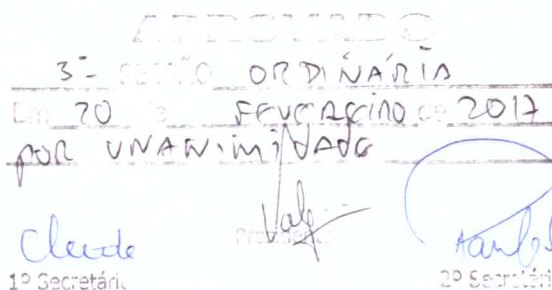 APROVADO
3ª SESSÃO ORDINÁRIA
Em 20 de FEVEREIRO de 2017
POR UNANIMIDADE
Presidente
1º Secretário
2º Secretário